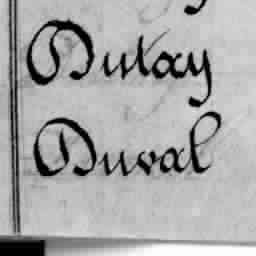 Dutay
Duval